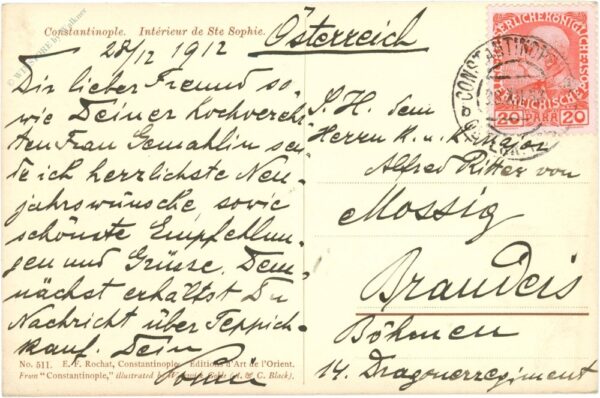 Constantinople. Intérieur de Ste Sophie.
28/12 1912 Österreich
Dir lieber Freund so-
wie Deiner hochverehr-
ten Frau Gemahlin sen-
de ich herzlichste Neu-
jahrswünsche sowie
schönste Empfehlun-
gen und Grüsse. Dem-
nächst erhältst Du
Nachricht über Teppich-
kauf. Dein
S. H. dem
Herrn K. u. K. Major
Alfred Ritter von
Mossig
Brandeis
Böhmen
14. Dragonerregiment
20 PARA 20
CONSTANTINOPEL
No. 511. E. F. Rochat, Constantinople. Editions d'Art de l'Orient.
From "Constantinople," illustrated by Warwick Goble (A. & C. Black).